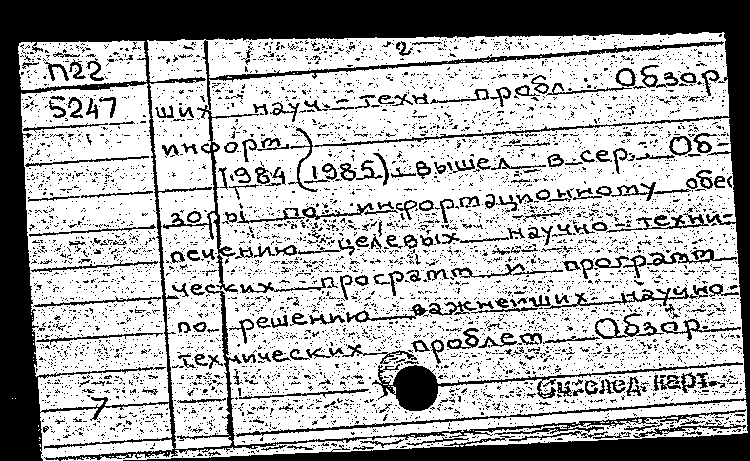 2
П22
5247
ших науч.-техн. пробл.: Обзор.
информ.)
1984 (1985). вышел в сер.: Об-
зоры по информационному обес
печению целевых научно-техни-
ческих программ и программ
по решению важнейших научно-
технических проблем: Обзор.
См. след. карт.
7